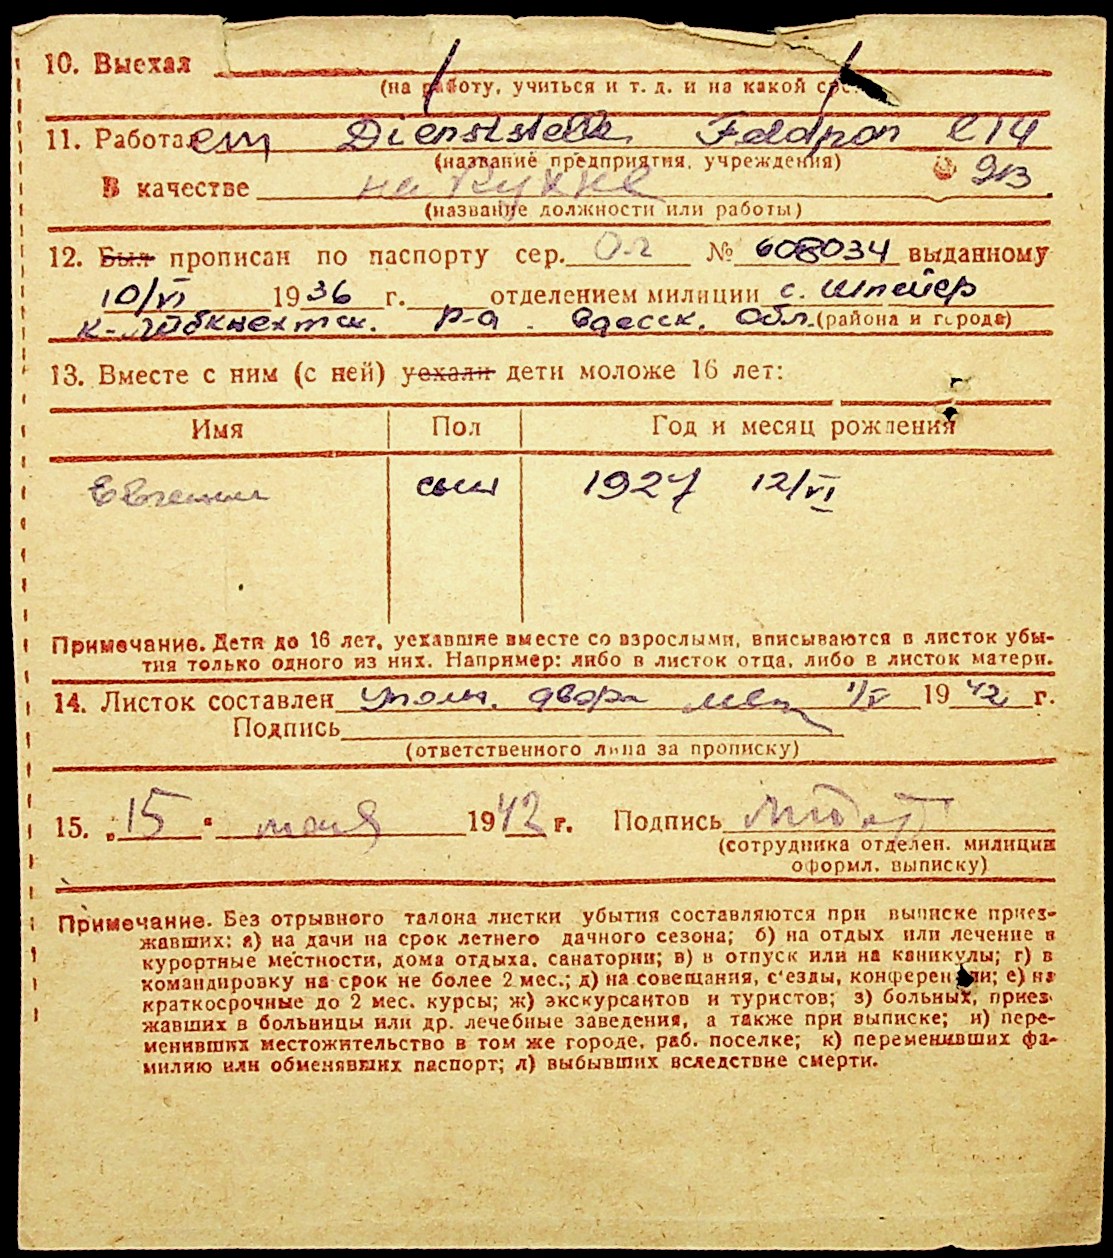 10. Выехал
(на работу, учиться и т. д. и на какой срок)
11. Работает Dienststelle Feldpon
(название предприятия, учреждения) 913
В качестве на кухне
(название должности или работы)
12. Был прописан по паспорту сер. № 608034 выданному
10/VI 1936 г. отделением милиции с. Шпейер
К-Либкнехтск. р-а. Одесск. Обл. (района и города)
13. Вместе с ним (с ней) уехали дети моложе 16 лет:
Имя Пол Год и месяц рождения
Евгений сын 1927 12/VI
Примечание. Дети до 16 лет, уехавшие вместе со взрослыми, вписываются в листок убы-
тия только одного из них. Например: либо в листок отца, либо в листок матери.
14. Листок составлен уполн. двора 1/V 1942 г.
Подпись
(ответственного лица за прописку)
15. „15" мая 1942 г. Подпись
(сотрудника отделен. милиции
оформл. выписку)
Примечание. Без отрывного талона листки убытия составляются при выписке приез-
жавших: а) на дачи на срок летнего дачного сезона; б) на отдых или лечение в
курортные местности, дома отдыха, санатории; в) в отпуск или на каникулы; г) в
командировку на срок не более 2 мес.; д) на совещания, с'езды, конференции; е) на
краткосрочные до 2 мес. курсы; ж) экскурсантов и туристов; з) больных, приез-
жавших в больницы или др. лечебные заведения, а также при выписке; и) пере-
менивших местожительство в том же городе, раб. поселке; к) переменивших фа-
милию или обменявших паспорт; л) выбывших вследствие смерти.